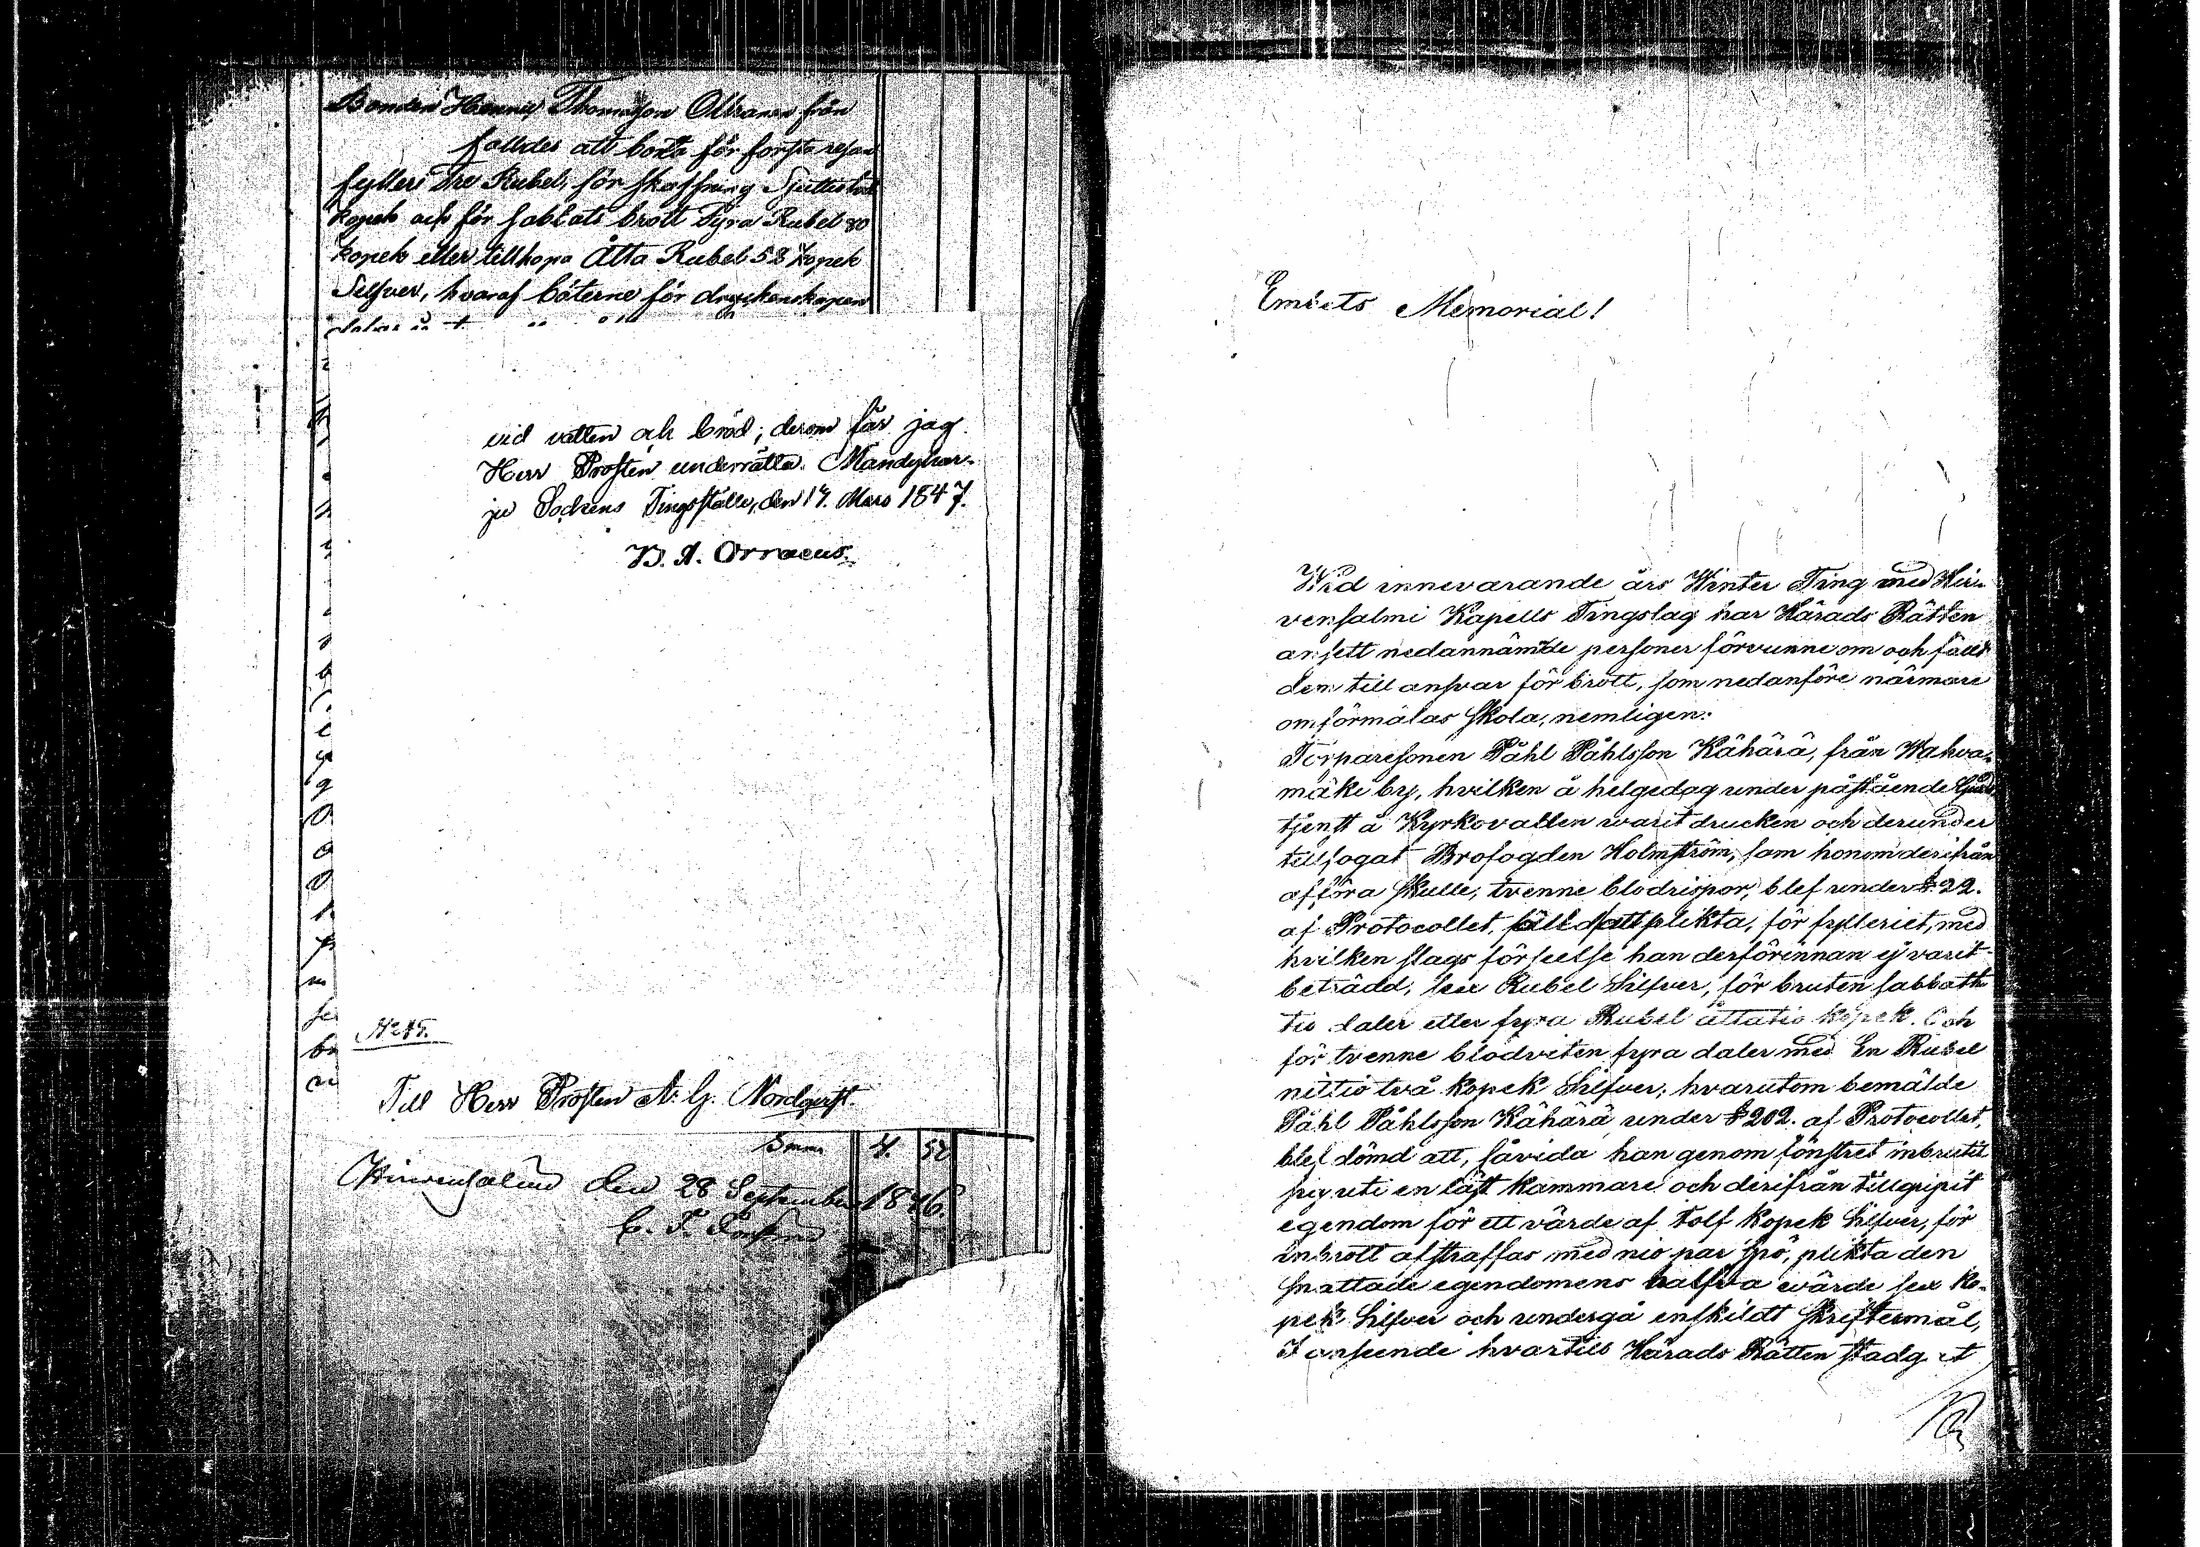 Bonden Thomasson Ollikainen från
falldes att böta för första resan
fylleri Tre Rubel, för skaffning Sjuttiotvå
kopek och för sabbats brott Fyra Rubel 80
kopek eller tillhopa Åtta Rubel 52 kopek
Silfver, hvaraf böterne för dryckenskapen
vid vatten och bröd; derom får jag
Herr Prosten underrätta. Mändyhar-
ju Sockens Tingsställe, den 17. Mars 1847.
B. A. Orraeus.
Till Herr Prosten A. G. Nordqvist.
Summa 4. 52
Hirvensalmi den 28 September 1846.
Embets Memorial!
Wid innevarande års Winter Ting med Hir-
vensalmi Kapells Tingslag har Härads Rätten
ansett nedannämnde personer förvunne om och fällt
dem till ansvar för brott, som nedanföre närmare
omförmälas skola, nemligen:
Torparesonen Påhl Påhlsson Kähärä, från Wahva-
mäki by, hvilken å helgedag under påstående Guds
tjenst å Kyrkovallen varit drucken och derunder
tillfogat Brofogden Holmström, som honom derifrån
afföra skulle, tvenne blodrispor, blef under § 22.
af Protocollet, fälld att plikta, för fylleriet, med
hvilken slags förseelse han derförinnan ej varit
beträdd, sex Rubel Silfver, för bruten sabbath
tio daler eller fyra Rubel åttatio kopek. Och
för tvenne blodviten fyra daler med En Rubel
nittio två kopek Silfver; hvarutom bemälde
Påhl Påhlsson Kähärä under § 202. af Protocollet,
blef dömd att, såvida han genom fönstret inbrutit
sig uti en låst kammare och derifrån tillgripit
egendom för ett värde af tolf kopek Silfver, för
inbrott afstraffas med nio par spö, plikta den
snattade egendomens halfva värde sex ko-
pek Silfver och undergå enskildt skriftermål,
I anseende hvartill Härads Rätten stadgat